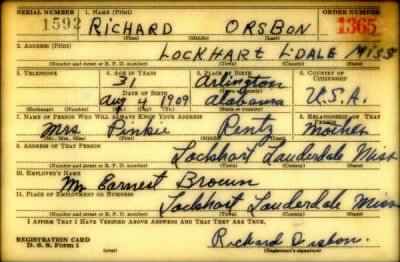 SERIAL NUMBER 1. NAME (Print) ORDER NUMBER
1592 RICHARD ORSBON 1365
(First) (Middle) (Last)
2. ADDRESS (Print)
LOCKHART L'DALE MISS
(Number and street or R. F. D. number) (Town) (County) (State)
3. TELEPHONE 4. AGE IN YEARS 5. PLACE OF BIRTH 6. COUNTRY OF CITIZENSHIP
31 Arlington
DATE OF BIRTH (Town or county)
Aug 4 1909 Alabama U.S.A.
(Exchange) (Number) (Mo.) (Day) (Yr.) (State or country)
7. NAME OF PERSON WHO WILL ALWAYS KNOW YOUR ADDRESS 8. RELATIONSHIP OF THAT PERSON
Mrs Pinkie Rentz Mother
(Mr., Mrs., Miss) (First) (Middle) (Last)
9. ADDRESS OF THAT PERSON
Lockhart Lauderdale Miss
(Number and street or R. F. D. number) (Town) (County) (State)
10. EMPLOYER'S NAME
Mr Earnest Brown
11. PLACE OF EMPLOYMENT OR BUSINESS
Lockhart Lauderdale Miss
(Number and street or R. F. D. number) (Town) (County) (State)
I AFFIRM THAT I HAVE VERIFIED ABOVE ANSWERS AND THAT THEY ARE TRUE.
REGISTRATION CARD
D. S. S. Form 1
Richard Orsbon.